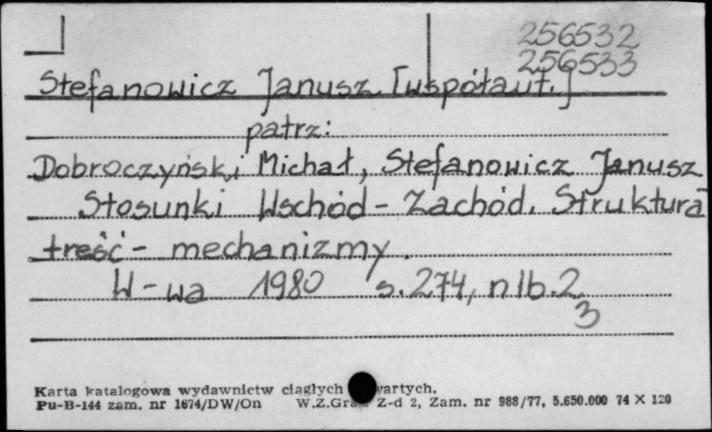 256532
256533
Stefanowicz Janusz [współaut.]
patrz:
Dobroczyński Michał, Stefanowicz Janusz
Stosunki Wschód - Zachód. Struktura
treść - mechanizmy.
W-wa 1980 s. 274, nlb. 2
3
Karta katalogowa wydawnictw ciągłych
Pu-B-144 zam. nr 1674/DW/On W.Z.Graf Z-d 2, Zam. nr 988/77, 5.650.000 74 X 120